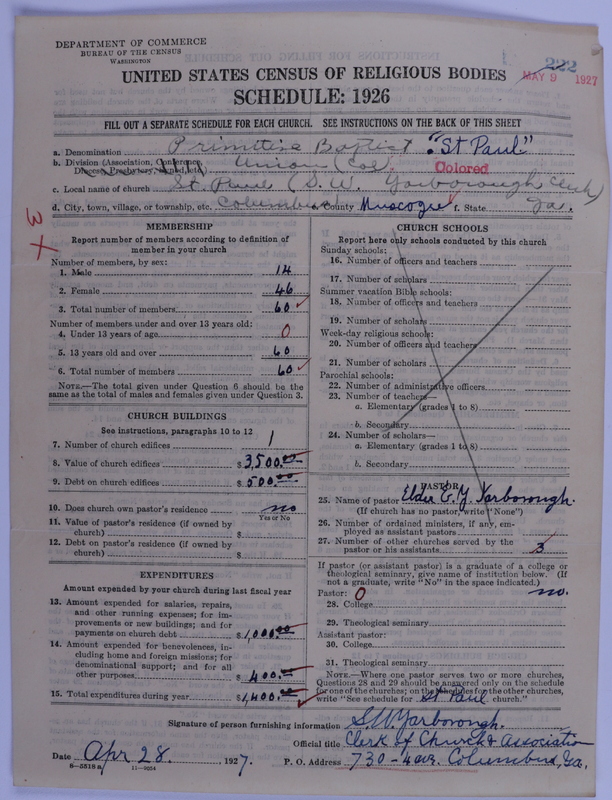 DEPARTMENT OF COMMERCE
BUREAU OF THE CENSUS
WASHINGTON
222
MAY 9 1927
UNITED STATES CENSUS OF RELIGIOUS BODIES
SCHEDULE: 1926
FILL OUT A SEPARATE SCHEDULE FOR EACH CHURCH. SEE INSTRUCTIONS ON THE BACK OF THIS SHEET
a. Denomination Primitive Baptist "St Paul"
b. Division (Association, Conference, Union (Col. Colored
Diocese, Presbytery, Synod, etc.)
c. Local name of church St. Paul (S. W. Yarborough Clerk)
d. City, town, village, or township, etc. Columbus e. County Muscogee f. State Ga.
3 X
MEMBERSHIP
Report number of members according to definition of
member in your church
Number of members, by sex:
1. Male 14
2. Female 46
3. Total number of members 60
Number of members under and over 13 years old:
4. Under 13 years of age 0
5. 13 years old and over 60
6. Total number of members 60
NOTE.—The total given under Question 6 should be the
same as the total of males and females given under Question 3.
CHURCH BUILDINGS
See instructions, paragraphs 10 to 12
7. Number of church edifices 1
8. Value of church edifices $3,500.00
9. Debt on church edifices $500.00
10. Does church own pastor's residence no
Yes or No
11. Value of pastor's residence (if owned by
church) $
12. Debt on pastor's residence (if owned by
church) $
EXPENDITURES
Amount expended by your church during last fiscal year
13. Amount expended for salaries, repairs,
and other running expenses; for im-
provements or new buildings; and for
payments on church debt $1,000.00
14. Amount expended for benevolences, in-
cluding home and foreign missions; for
denominational support; and for all
other purposes $400.00
15. Total expenditures during year $1,400.00
CHURCH SCHOOLS
Report here only schools conducted by this church
Sunday schools:
16. Number of officers and teachers
17. Number of scholars
Summer vacation Bible schools:
18. Number of officers and teachers
19. Number of scholars
Week-day religious schools:
20. Number of officers and teachers
21. Number of scholars
Parochial schools:
22. Number of administrative officers
23. Number of teachers—
a. Elementary (grades 1 to 8)
b. Secondary
24. Number of scholars—
a. Elementary (grades 1 to 8)
b. Secondary
PASTOR
25. Name of pastor Elder E. Y. Yarborough.
(If church has no pastor, write "None")
26. Number of ordained ministers, if any, em-
ployed as assistant pastors
27. Number of other churches served by the
pastor or his assistants 3
If pastor (or assistant pastor) is a graduate of a college or
theological seminary, give name of institution below. (If
not a graduate, write "No" in the space indicated.)
Pastor: 0 no.
28. College
29. Theological seminary
Assistant pastor:
30. College
31. Theological seminary
NOTE.—Where one pastor serves two or more churches,
Questions 28 and 29 should be answered only on the schedule
for one of the churches; on the schedules for the other churches,
write "See schedule for St Paul church."
Signature of person furnishing information S. W. Yarborough.
Official title Clerk of Church & Association
Date Apr 28. , 1927. P. O. Address 730-4 ave. Columbus, Ga.
8—5518 a 11—9054